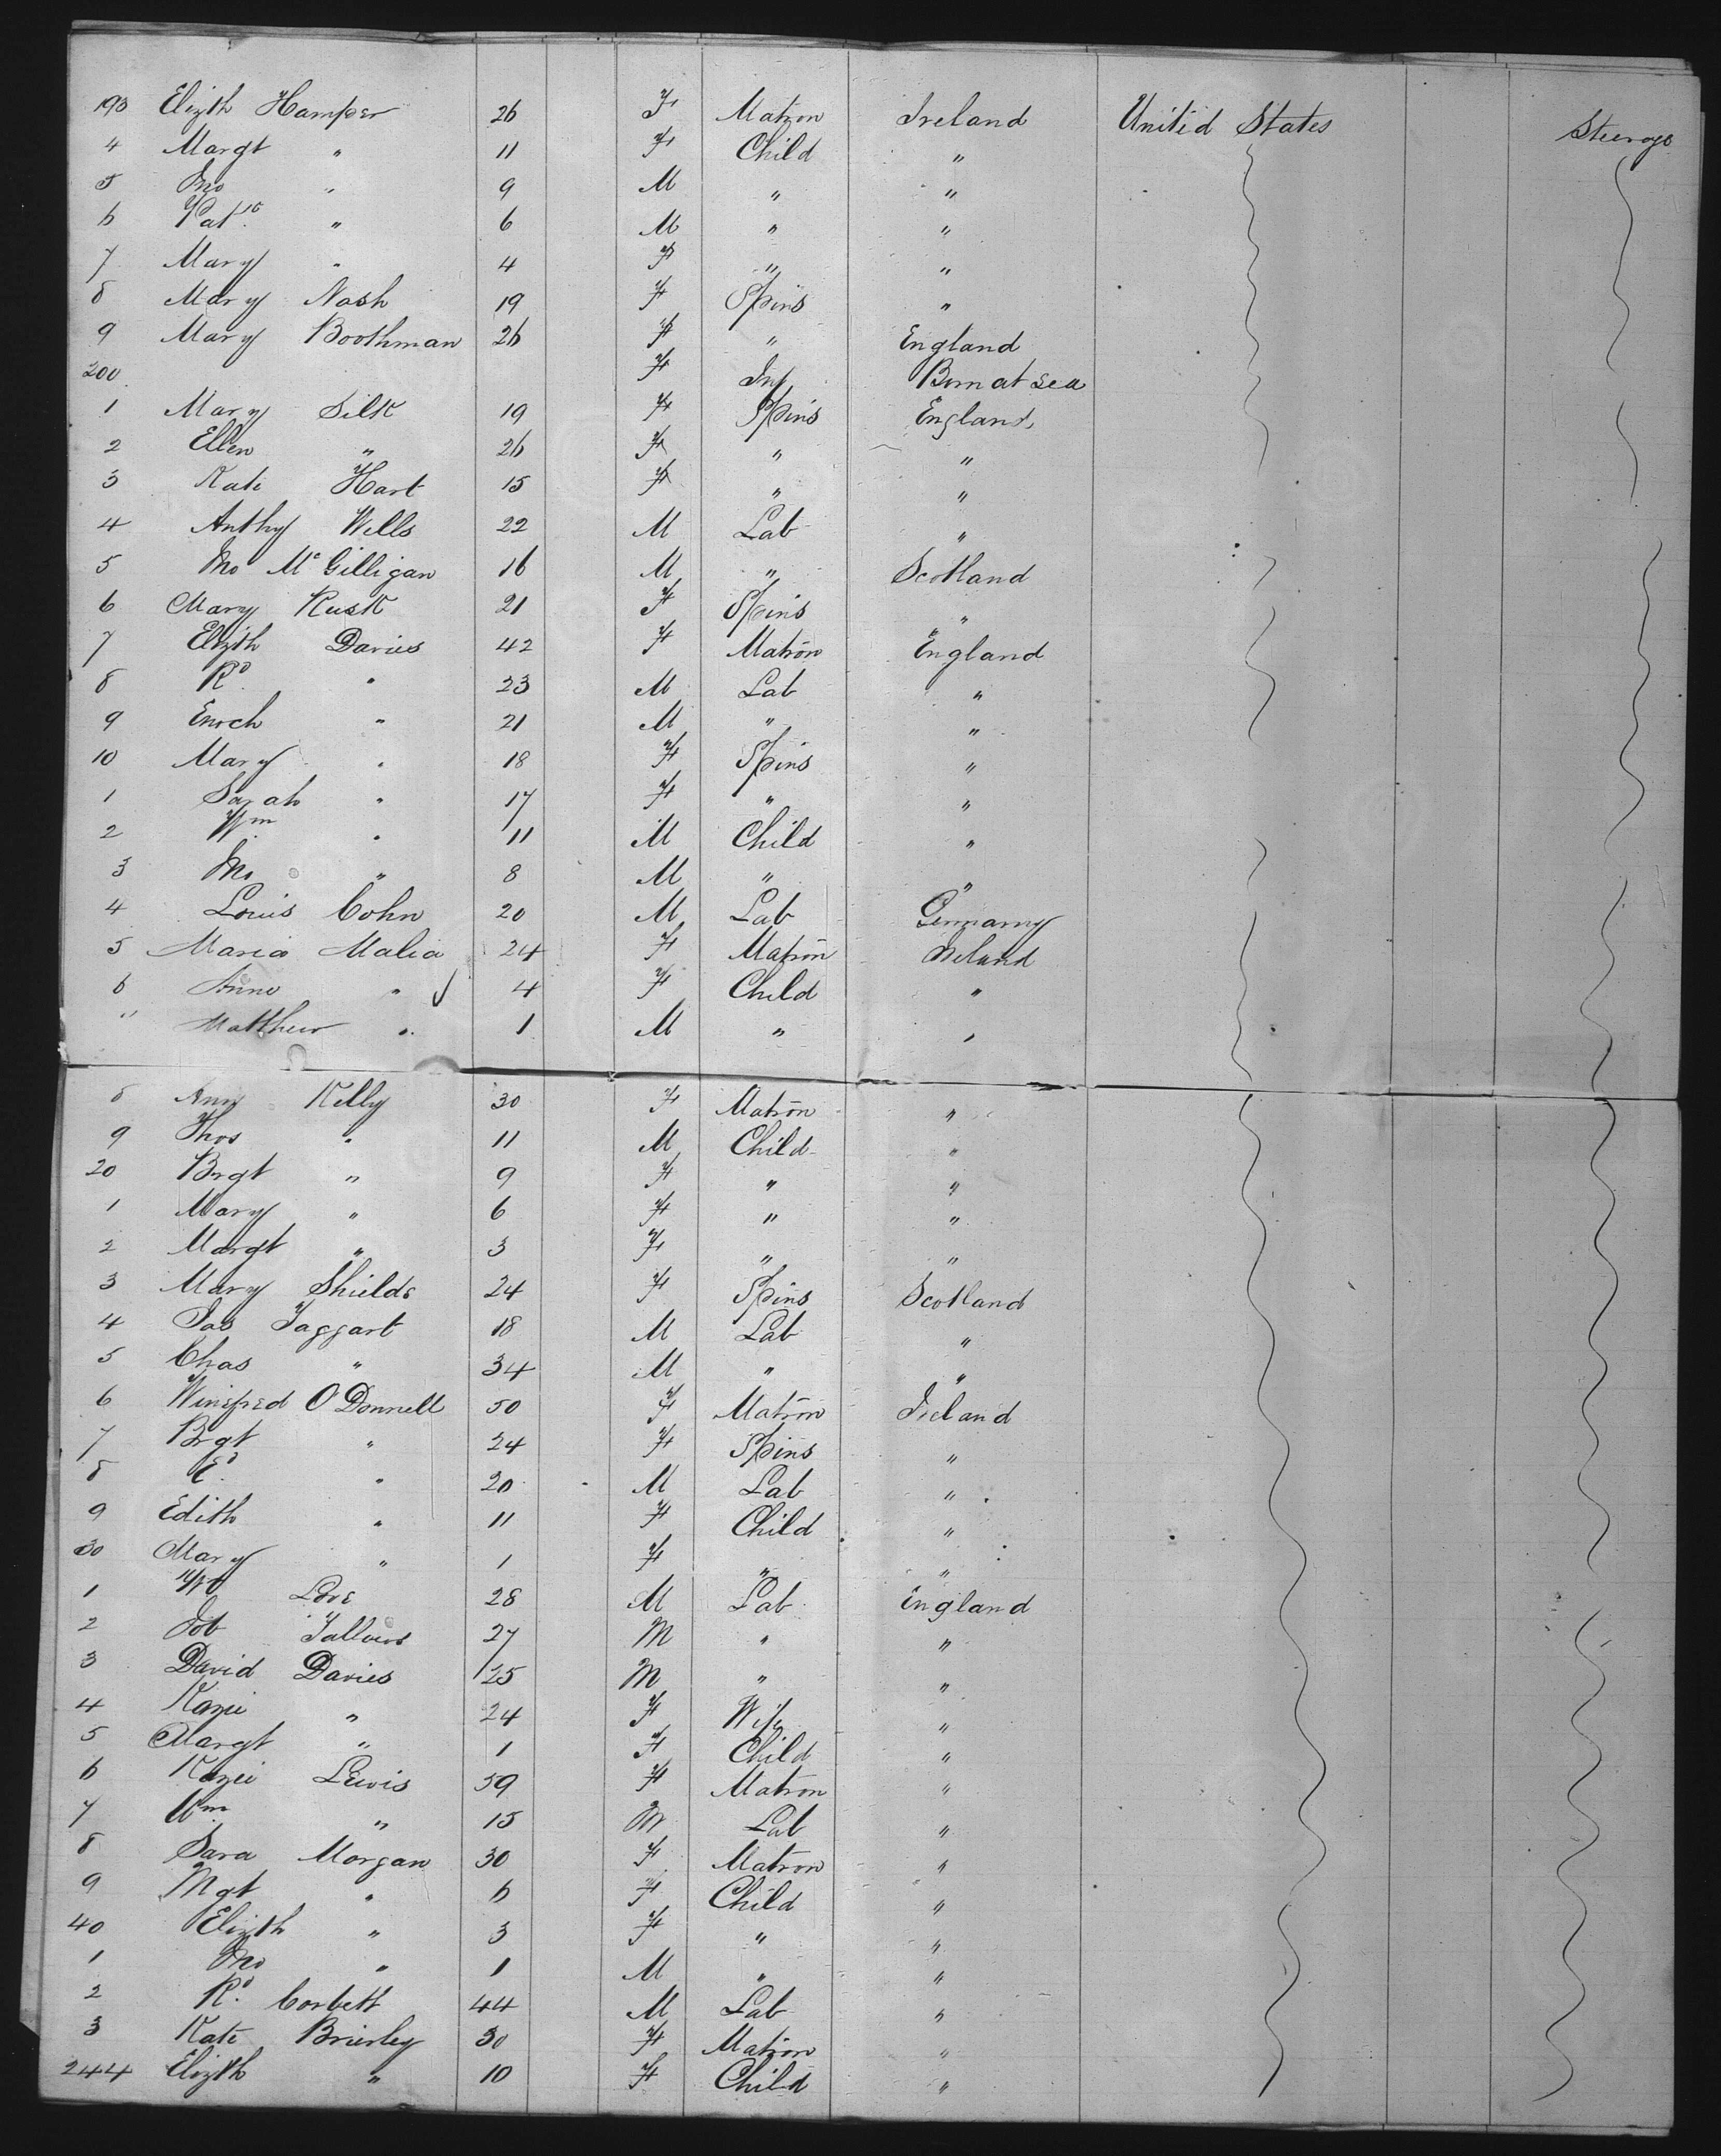 193 Elizth Hamper 26 F Matron Ireland United States Steerage
4 Margt " 11 F Child "
5 Jno " 9 M " "
6 Patk " 6 M " "
7 Mary " 4 F " "
8 Mary Nash 19 F Spins "
9 Mary Boothman 26 F " England
200 F Inf Born at Sea
1 Mary Silk 19 F Spins England
2 Ellen " 26 F " "
3 Kate Hart 15 F " "
4 Anthy Wells 22 M Lab "
5 Jno McGilligan 16 M " Scotland
6 Mary Rusk 21 F Spins "
7 Elizth Davies 42 F Matron England
8 Rd " 23 M Lab "
9 Enoch " 21 M " "
10 Mary " 18 F Spins "
1 Sarah " 17 F " "
2 Wm " 11 M Child "
3 Jno " 8 M " "
4 Louis Cohn 20 M Lab Germany
5 Maria Malia 24 F Matron Ireland
6 Anne " 4 F Child "
" Matthew " 1 M " "
8 Ann Kelly 30 F Matron "
9 Thos " 11 M Child "
20 Brgt " 9 F " "
1 Mary " 6 F " "
2 Margt " 3 F " "
3 Mary Shields 24 F Spins Scotland
4 Jas Taggart 18 M Lab "
5 Chas " 34 M " "
6 Winefred O'Donnell 50 F Matron Ireland
7 Brgt " 24 F Spins "
8 Ed " 20 M Lab "
9 Edith " 11 F Child "
30 Mary " 1 F " "
1 Love 28 M Lab England
2 Job 27 M " "
3 David Davies 25 M " "
4 " 24 F Wife "
5 Margt " 1 F Child "
6 Lewis 59 F Matron "
7 Wm " 15 M Lab "
8 Sara Morgan 30 F Matron "
9 Mgt " 6 F Child "
40 Elizth " 3 F " "
1 Jno " 1 M " "
2 Rd Corbett 44 M Lab "
3 Kate Brierley 30 F Matron "
244 Elizth " 10 F Child "